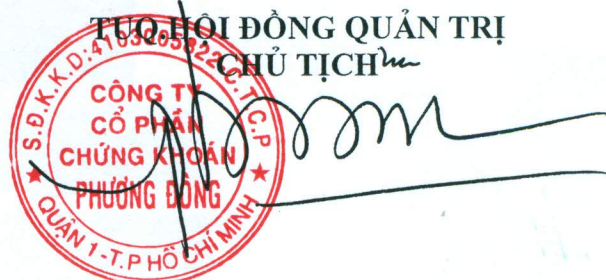 TUQ.HỘI ĐỒNG QUẢN TRỊ
CHỦ TỊCH
S.Đ.K.K.D:4103005822-C.T.C.P
CÔNG TY
CỔ PHẦN
CHỨNG KHOÁN
PHƯƠNG ĐÔNG
QUẬN 1-T.P HỒ CHÍ MINH